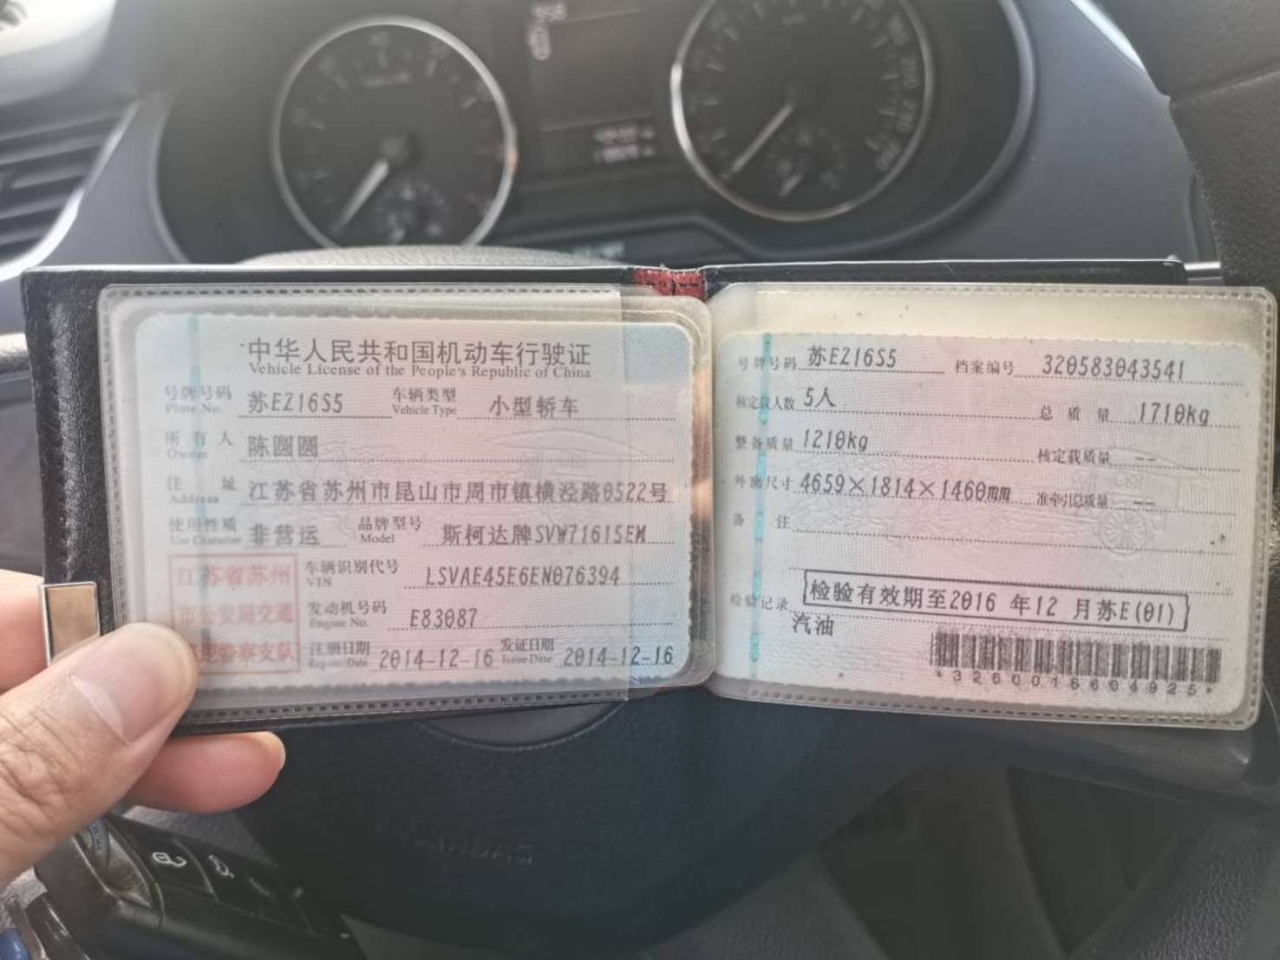 中华人民共和国机动车行驶证
Vehicle License of the People's Republic of China
号牌号码 苏EZ16S5 车辆类型 小型轿车
Plate No. Vehicle Type
所有人 陈圆圆
Owner
住址 江苏省苏州市昆山市周市镇横泾路0522号
Address
使用性质 非营运 品牌型号 斯柯达牌SVW71615EM
Use Character Model
江苏省苏州
市公安局交通
警察支队
车辆识别代号 LSVAE45E6EN076394
VIN
发动机号码 E83087
Engine No.
注册日期 2014-12-16 发证日期 2014-12-16
Register Date Issue Date
号牌号码 苏EZ16S5 档案编号 320583043541
核定载人数 5人 总质量 1710kg
整备质量 1210kg 核定载质量 --
外廓尺寸 4659×1814×1460mm 准牵引总质量 --
备注
检验记录 检验有效期至2016 年12 月苏E(01)
汽油
*3260016604925*